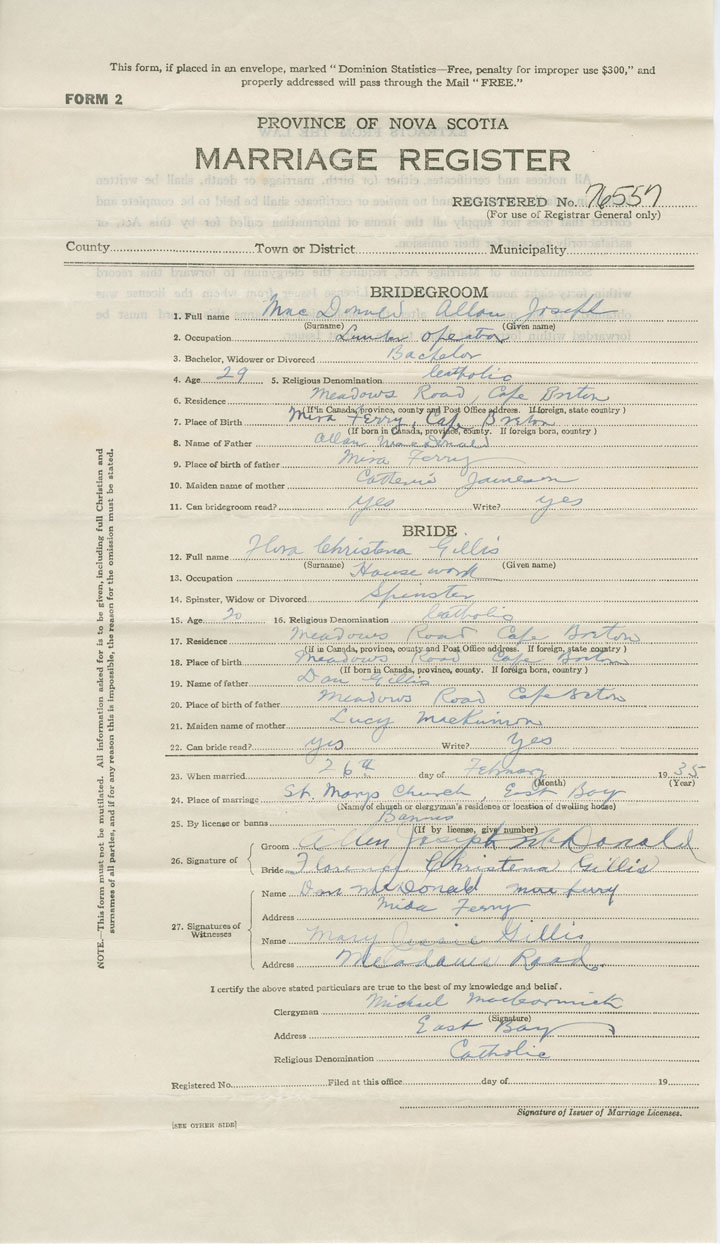 This form, if placed in an envelope, marked "Dominion Statistics—Free, penalty for improper use $300," and
properly addressed will pass through the Mail "FREE."
FORM 2
PROVINCE OF NOVA SCOTIA
MARRIAGE REGISTER
REGISTERED No. 76557
(For use of Registrar General only)
County Town or District Municipality
BRIDEGROOM
1. Full name Mac Donald Allan Joseph
(Surname) (Given name)
2. Occupation Lumber operator
3. Bachelor, Widower or Divorced Bachelor
4. Age 29 5. Religious Denomination Catholic
6. Residence Meadows Road, Cape Breton
(If in Canada, province, county and Post Office address. If foreign, state country)
7. Place of Birth Mira Ferry, Cape Breton
(If born in Canada, province, county. If foreign born, country)
8. Name of Father Allan MacDonald
9. Place of birth of father Mira Ferry
10. Maiden name of mother Catherine Jameson
11. Can bridegroom read? yes Write? yes
BRIDE
12. Full name Flora Christena Gillis
(Surname) (Given name)
13. Occupation House work
14. Spinster, Widow or Divorced Spinster
15. Age 20 16. Religious Denomination Catholic
17. Residence Meadows Road Cape Breton
(If in Canada, province, county and Post Office address. If foreign, state country)
18. Place of birth Meadows Road Cape Breton
(If born in Canada, province, county. If foreign born, country)
19. Name of father Dan Gillis
20. Place of birth of father Meadows Road Cape Breton
21. Maiden name of mother Lucy MacKinnon
22. Can bride read? yes Write? Yes
23. When married 26th day of February 1935
(Month) (Year)
24. Place of marriage St. Marys Church, East Bay
(Name of church or clergyman's residence or location of dwelling house)
25. By license or banns Banns
(If by license, give number)
26. Signature of
Groom Allen Joseph McDonald
Bride Florence Christena Gillis
27. Signatures of Witnesses
Name Dan McDonald Mira Ferry
Address Mira Ferry
Name Mary Jessie Gillis
Address Meadows Road.
I certify the above stated particulars are true to the best of my knowledge and belief.
Clergyman Michael MacCormick
(Signature)
Address East Bay
Religious Denomination Catholic
Registered No. Filed at this office day of 19
Signature of Issuer of Marriage Licenses.
[SEE OTHER SIDE]
NOTE.—This form must not be mutilated. All information asked for is to be given, including full Christian and
surnames of all parties, and if for any reason this is impossible, the reason for the omission must be stated.